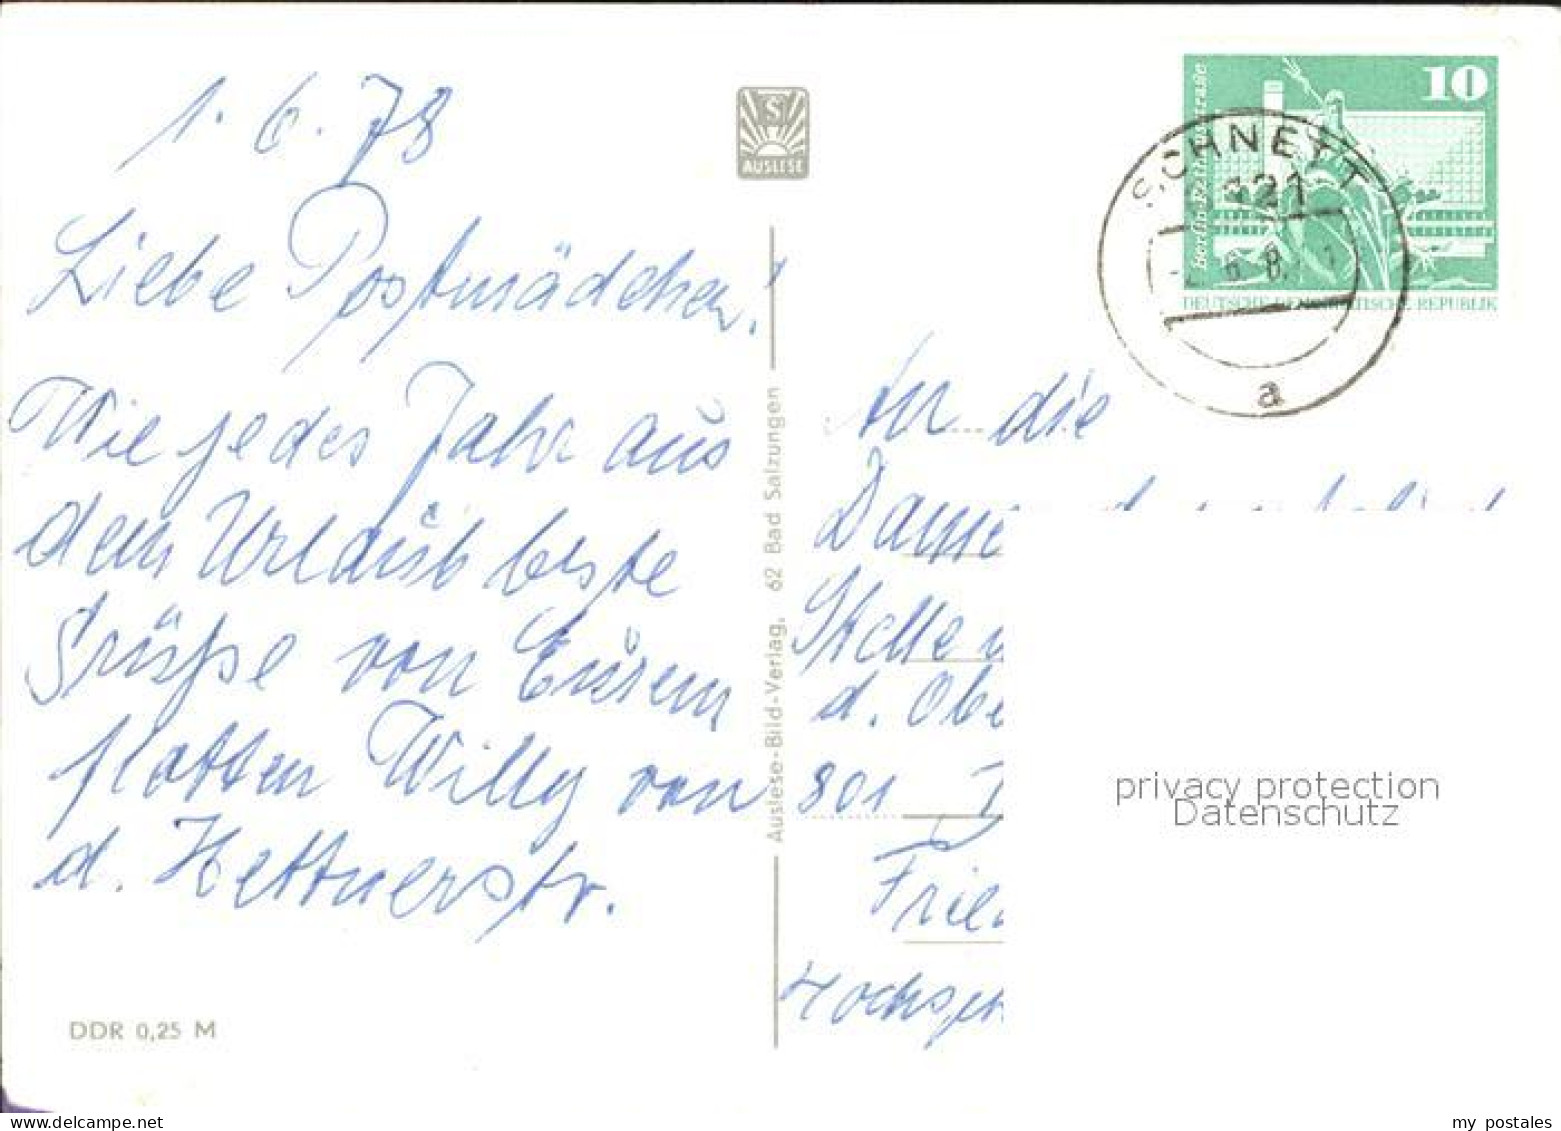 1. 6. 78
Liebe Postmädchen!
Wie jedes Jahr aus
dem Urlaub beste
Grüße von Eurem
flotten Willy von
d. Hettnerstr.
DDR 0,25 M
S
AUSLESE
Auslese-Bild-Verlag, 62 Bad Salzungen
10
Berlin-Rathausstraße
DEUTSCHE DEMOKRATISCHE REPUBLIK
SCHNETT
a
An die
d. Obe
801
privacy protection
Datenschutz
my postales